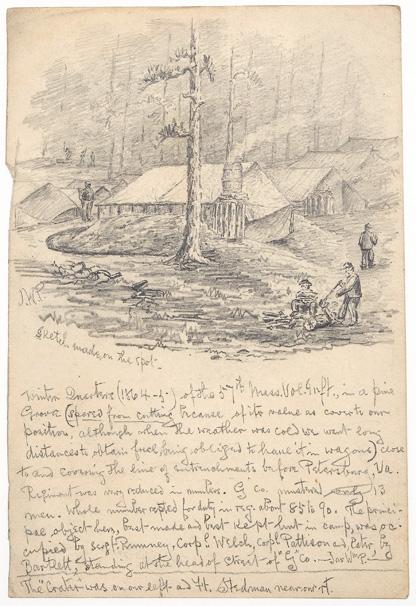 JWP
Sketch made on the spot.
Winter Quarters (1864-5-) of the 57th Mass. Vol. Inft., in a pine
Grove (spared from cutting because of its value as cover to our
position, although when the weather was cold we went long
distances to obtain fuel, being obliged to haul it in wagons) close
to and covering the line of entrenchments before Petersburg, Va.
Regiment was very reduced in numbers. G Co. mustered only 13
men. Whole number reported for duty in reg. about 85 to 90. The princi-
pal object here, best made and best kept hut in camp, was oc-
cupied by Sergt. Pinkham, Corpl. Welch, Corpl. Pattison and, later by
Bartlett, standing at the head of street of "G" Co.
The "Crater" was on our left and Ft. Stedman near our rt.